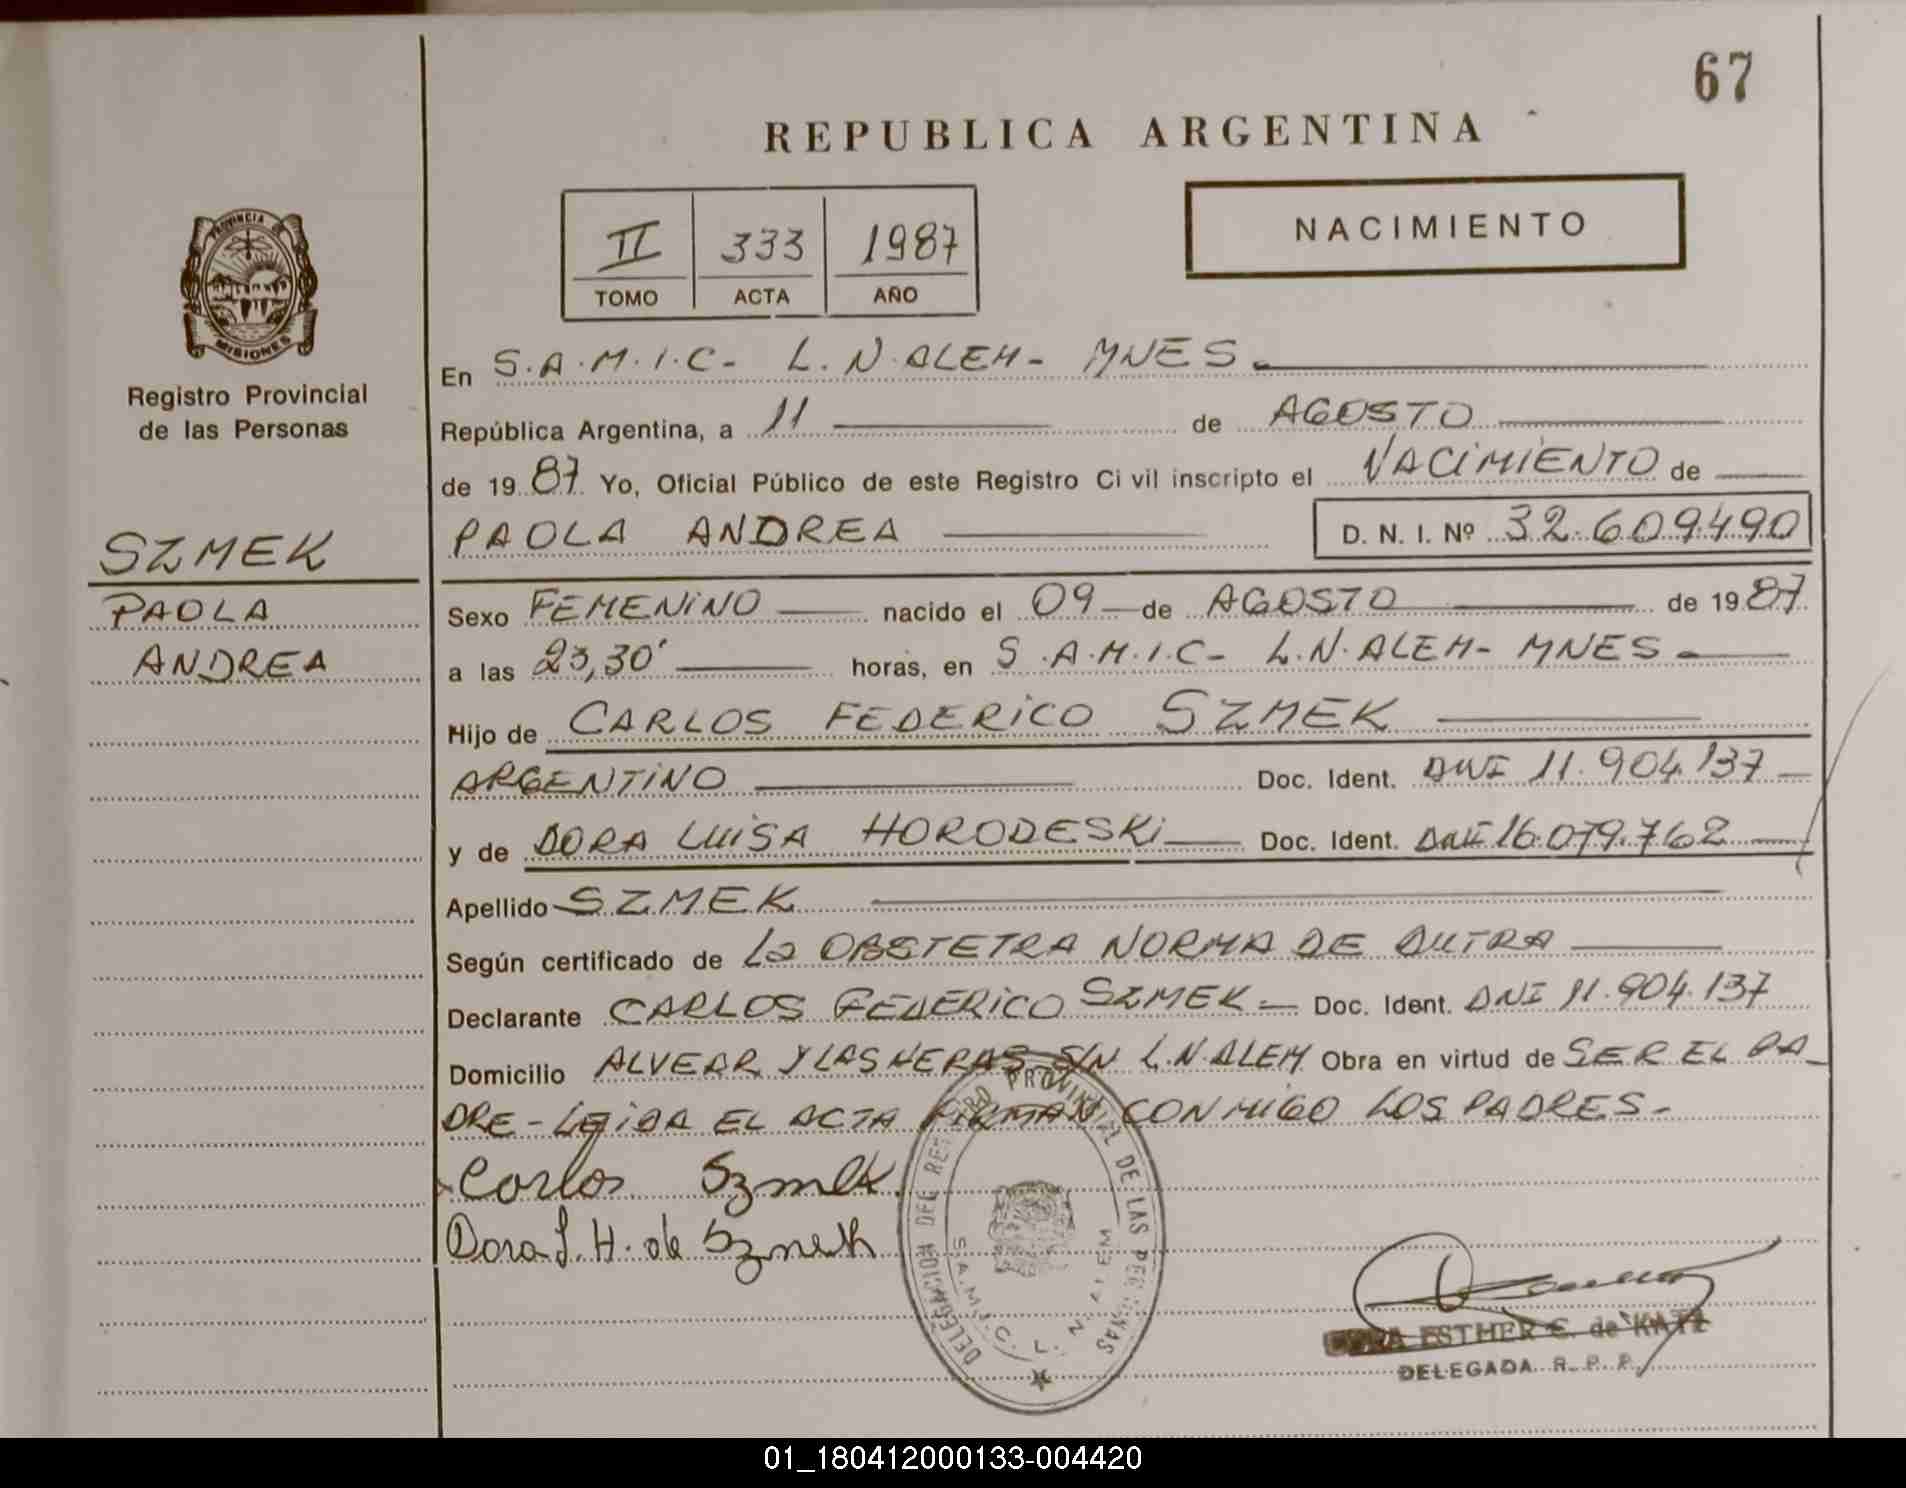 67
REPUBLICA ARGENTINA
II 333 1987
TOMO ACTA AÑO
NACIMIENTO
PROVINCIA DE
MISIONES
Registro Provincial
de las Personas
SZMEK
PAOLA
ANDREA
En S.A.M.I.C- L.N.ALEM- MNES-
República Argentina, a 11 de AGOSTO
de 1987 Yo, Oficial Público de este Registro Civil inscripto el NACIMIENTO de
PAOLA ANDREA D. N. I. Nº 32.609.490
Sexo FEMENINO nacido el 09 de AGOSTO de 1987
a las 23,30' horas, en S.A.M.I.C- L.N.ALEM- MNES-
Hijo de CARLOS FEDERICO SZMEK
ARGENTINO Doc. Ident. DNI 11.904.137
y de DORA LUISA HORODESKI Doc. Ident. DNI 16.079.762
Apellido SZMEK
Según certificado de La OBSTETRA NORMA DE DUTRA
Declarante CARLOS FEDERICO SZMEK Doc. Ident. DNI 11.904.137
Domicilio ALVEAR Y LAS HERAS S/N L.N.ALEM Obra en virtud de SER EL PA-
DRE- LEIDA EL ACTA FIRMAN CONMIGO LOS PADRES-
Carlos Szmek
Dora L. H. de Szmek
DELEGACION DEL REGISTRO PROVINCIAL DE LAS PERSONAS
S.A.M.I.C. L. N. ALEM
ESTHER C. de KATZ
DELEGADA R. P. P.
01_180412000133-004420